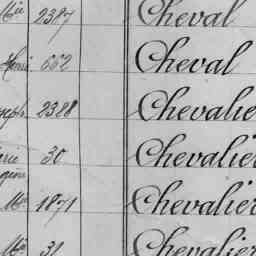 Mie 2387 Cheval
Henri 652 Cheval
2388 Chevalie
30 Chevalier
Me 1871 Chevalier
Me 31 Chevalier